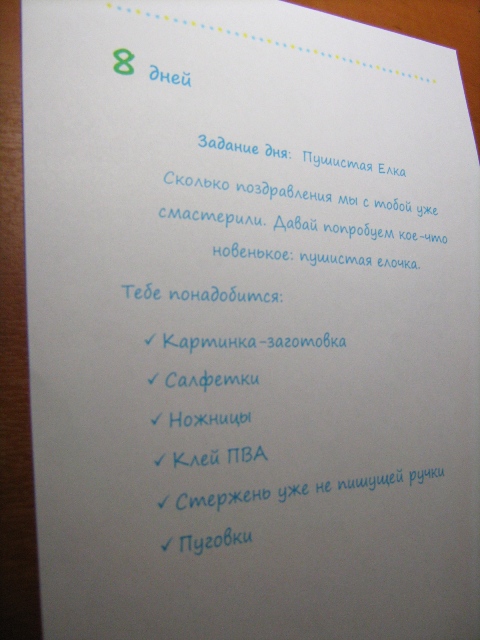 8 дней
Задание дня: Пушистая Елка
Сколько поздравления мы с тобой уже
смастерили. Давай попробуем кое-что
новенькое: пушистая елочка.
Тебе понадобится:
✓ Картинка-заготовка
✓ Салфетки
✓ Ножницы
✓ Клей ПВА
✓ Стержень уже не пишущей ручки
✓ Пуговки